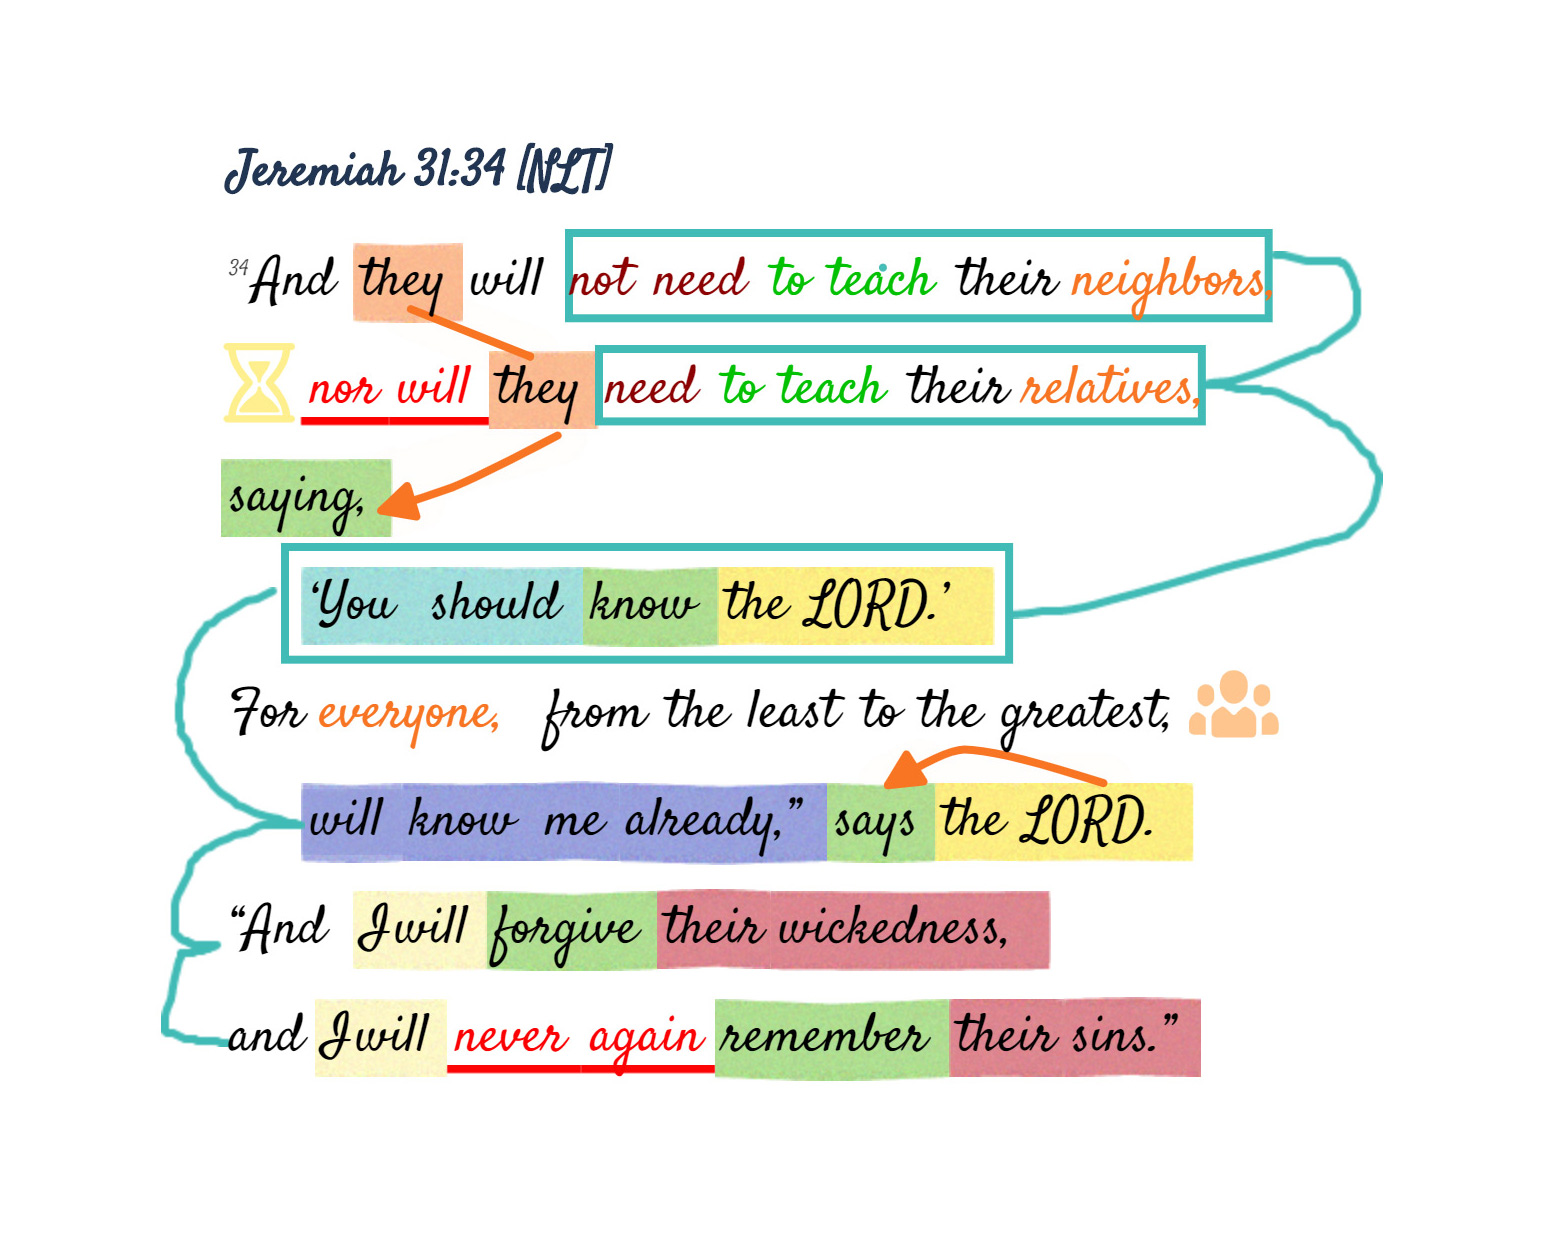 Jeremiah 31:34 [NLT]
34 And they will not need to teach their neighbors,
nor will they need to teach their relatives,
saying,
‘You should know the LORD.’
For everyone, from the least to the greatest,
will know me already,” says the LORD.
“And I will forgive their wickedness,
and I will never again remember their sins.”